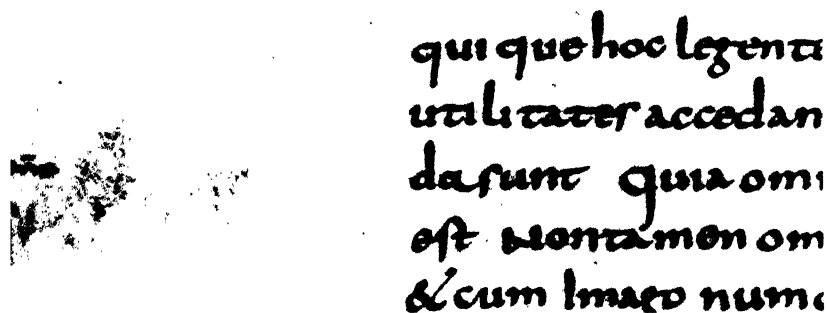 qui que hoc legenti
utilitates accedan
da sunt Quia omi
est Non tamen om
& cum Imago num